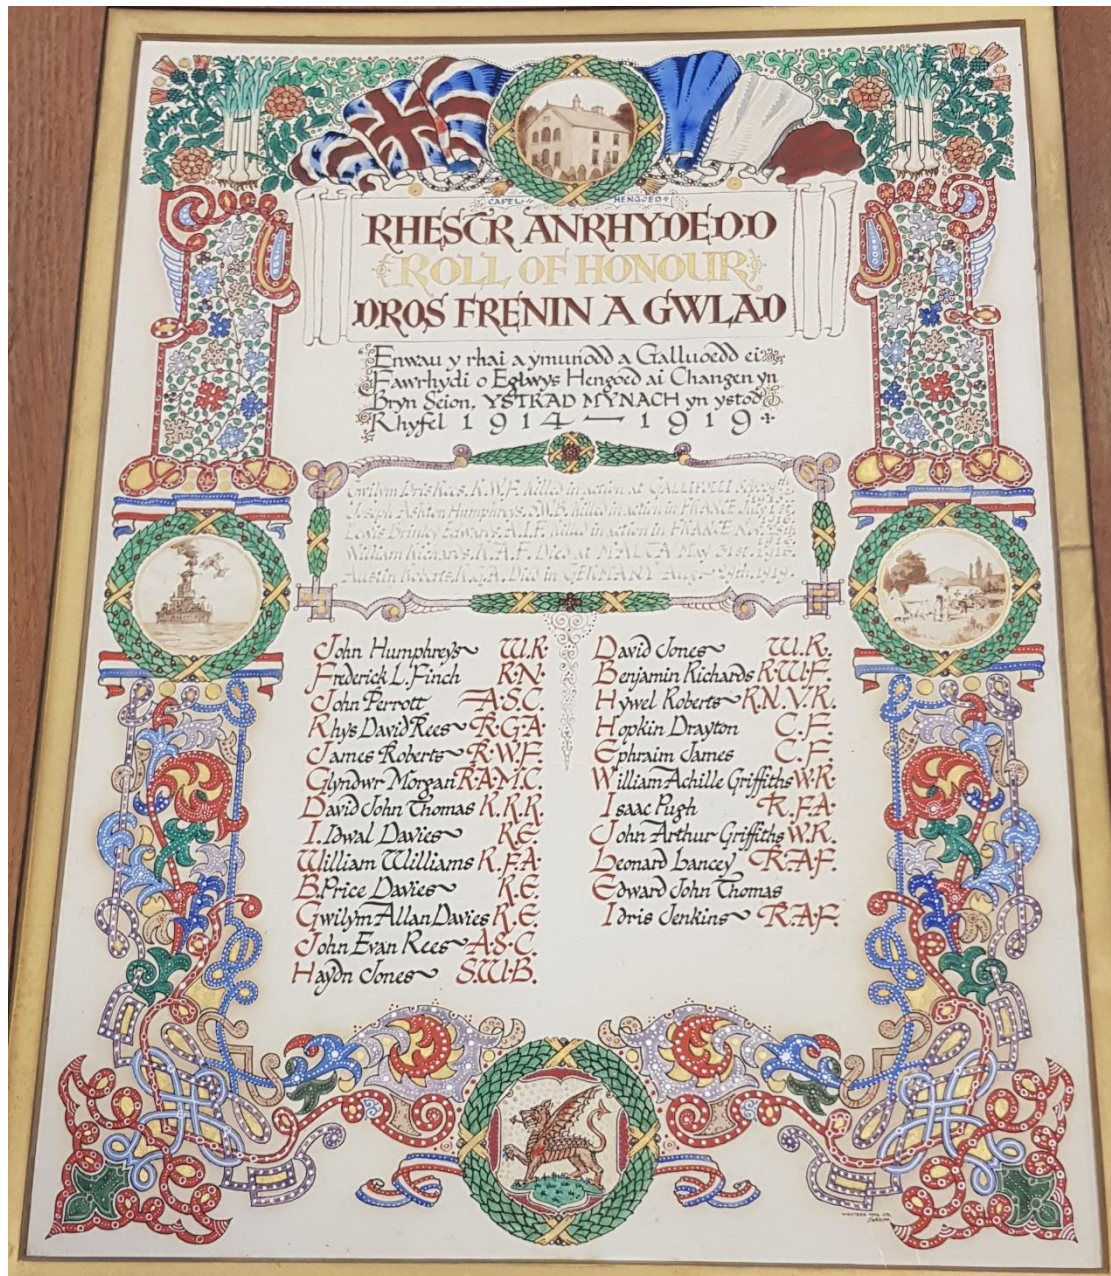 CAPEL HENGOED
RHESTR ANRHYDEDD
ROLL OF HONOUR
DROS FRENIN A GWLAD
Enwau y rhai a ymunodd a Galluoedd ei
Fawrhydi o Eglwys Hengoed ai Changen yn
Bryn Seion, YSTRAD MYNACH yn ystod
Rhyfel 1914 — 1919
Gwilym Idris Rees, R.W.F. Killed in action at GALLIPOLI
Joseph Ashton Humphreys, S.W.B. Killed in action in FRANCE July
Lewis Brinley Edwards, A.I.F. Killed in action in FRANCE
William Richards, R.A.F. Died at MALTA May 31st. 1918.
Austin Roberts, R.G.A. Died in GERMANY Aug. 29th. 1919.
John Humphreys W.R.
Frederick L. Finch R.N.
John Perrott A.S.C.
Rhys David Rees R.G.A.
James Roberts R.W.F.
Glyndwr Morgan R.A.M.C.
David John Thomas K.R.R.
I. Idwal Davies R.E.
William Williams R.F.A.
B. Price Davies R.E.
Gwilym Allan Davies R.E.
John Evan Rees A.S.C.
Haydn Jones S.W.B.
David Jones W.R.
Benjamin Richards R.W.F.
Hywel Roberts R.N.V.R.
Hopkin Drayton C.F.
Ephraim James C.F.
William Achille Griffiths W.R.
Isaac Pugh R.F.A.
John Arthur Griffiths W.R.
Leonard Lancey R.A.F.
Edward John Thomas
Idris Jenkins R.A.F.
WESTERN MAIL LTD.
CARDIFF